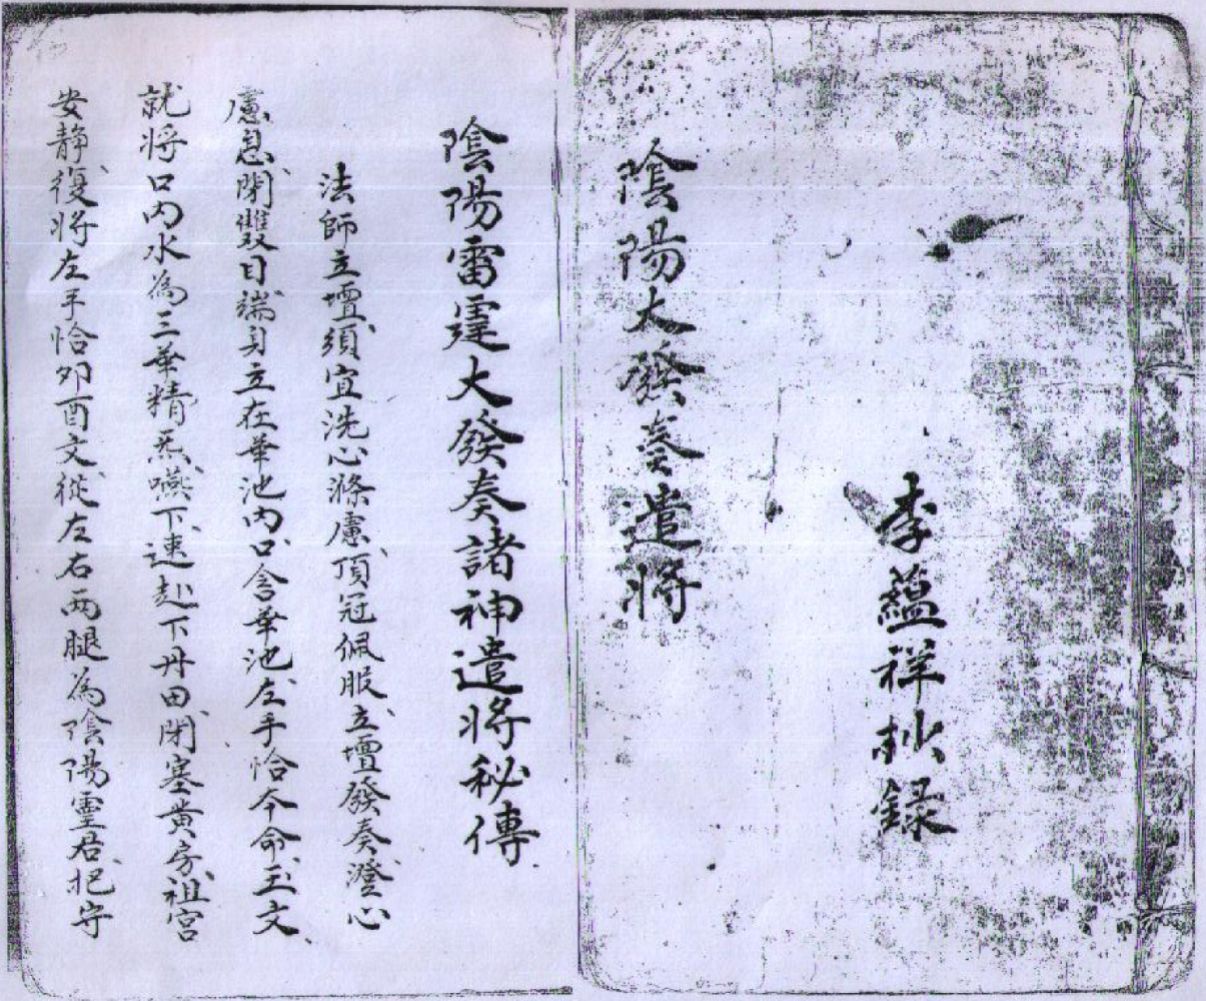 李蘊祥抄録
陰陽大發奏遣将
陰陽雷霆大發奏諸神遣将秘傳
法師立壇、須宜洗心滌慮、頂冠佩服、立壇發奏、澄心
慮息、閉雙目、端身立在華池内、口含華池、左手恰本命玉文
就将口内水為三華精炁、嚥下、速赴下丹田、閉塞黄房、祖宮
安静、復将左手恰卯酉文、從左右两腿為陰陽靈君、把守